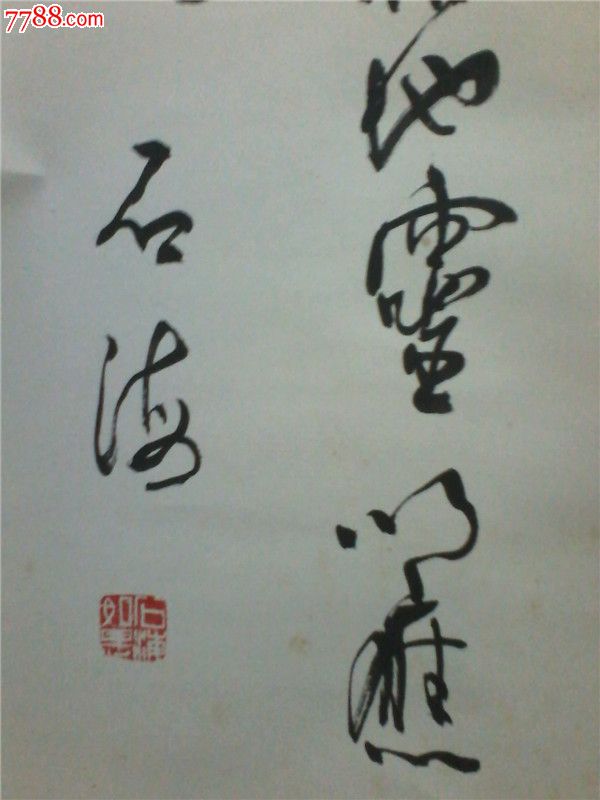 7788.com
地靈以應
石海
石海